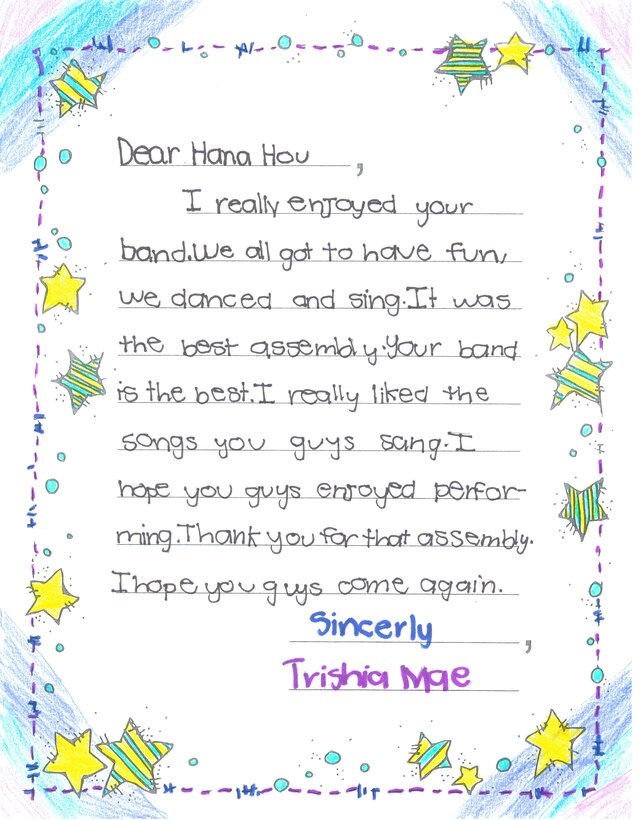 Dear Hana Hou,
I really enjoyed your
band.We all got to have fun,
we danced and sing.It was
the best assembly.Your band
is the best.I really liked the
songs you guys sang.I
hope you guys enjoyed perfor-
ming.Thank you for that assembly.
I hope you guys come again.
Sincerly,
Trishia Mae